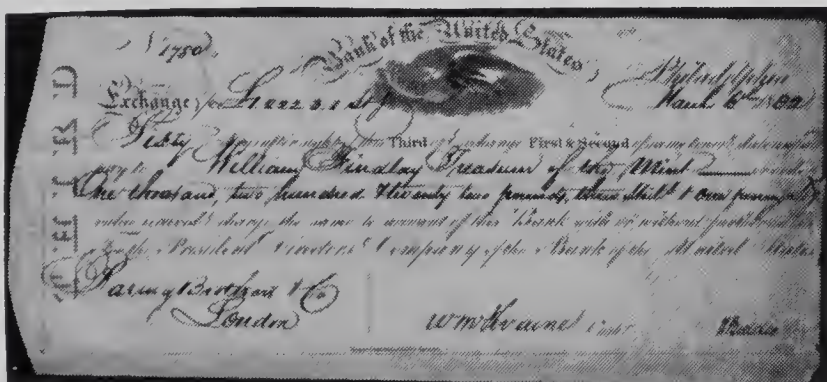 N 1750.
Bank of the United States
Philadelphia
Exchange for £1222.3.1 Stg
March 6th 1832
Sixty days after sight of this Third of exchange First & Second of same tenor & date unpaid
pay to William Findlay Treasurer of the Mint or order
One thousand, two hundred & twenty two pounds, three Shills & one penny
value received & charge the same to account of this Bank with or without further
the President Directors & Company of the Bank of the United States
Baring Brothers & Co
London
Cashr